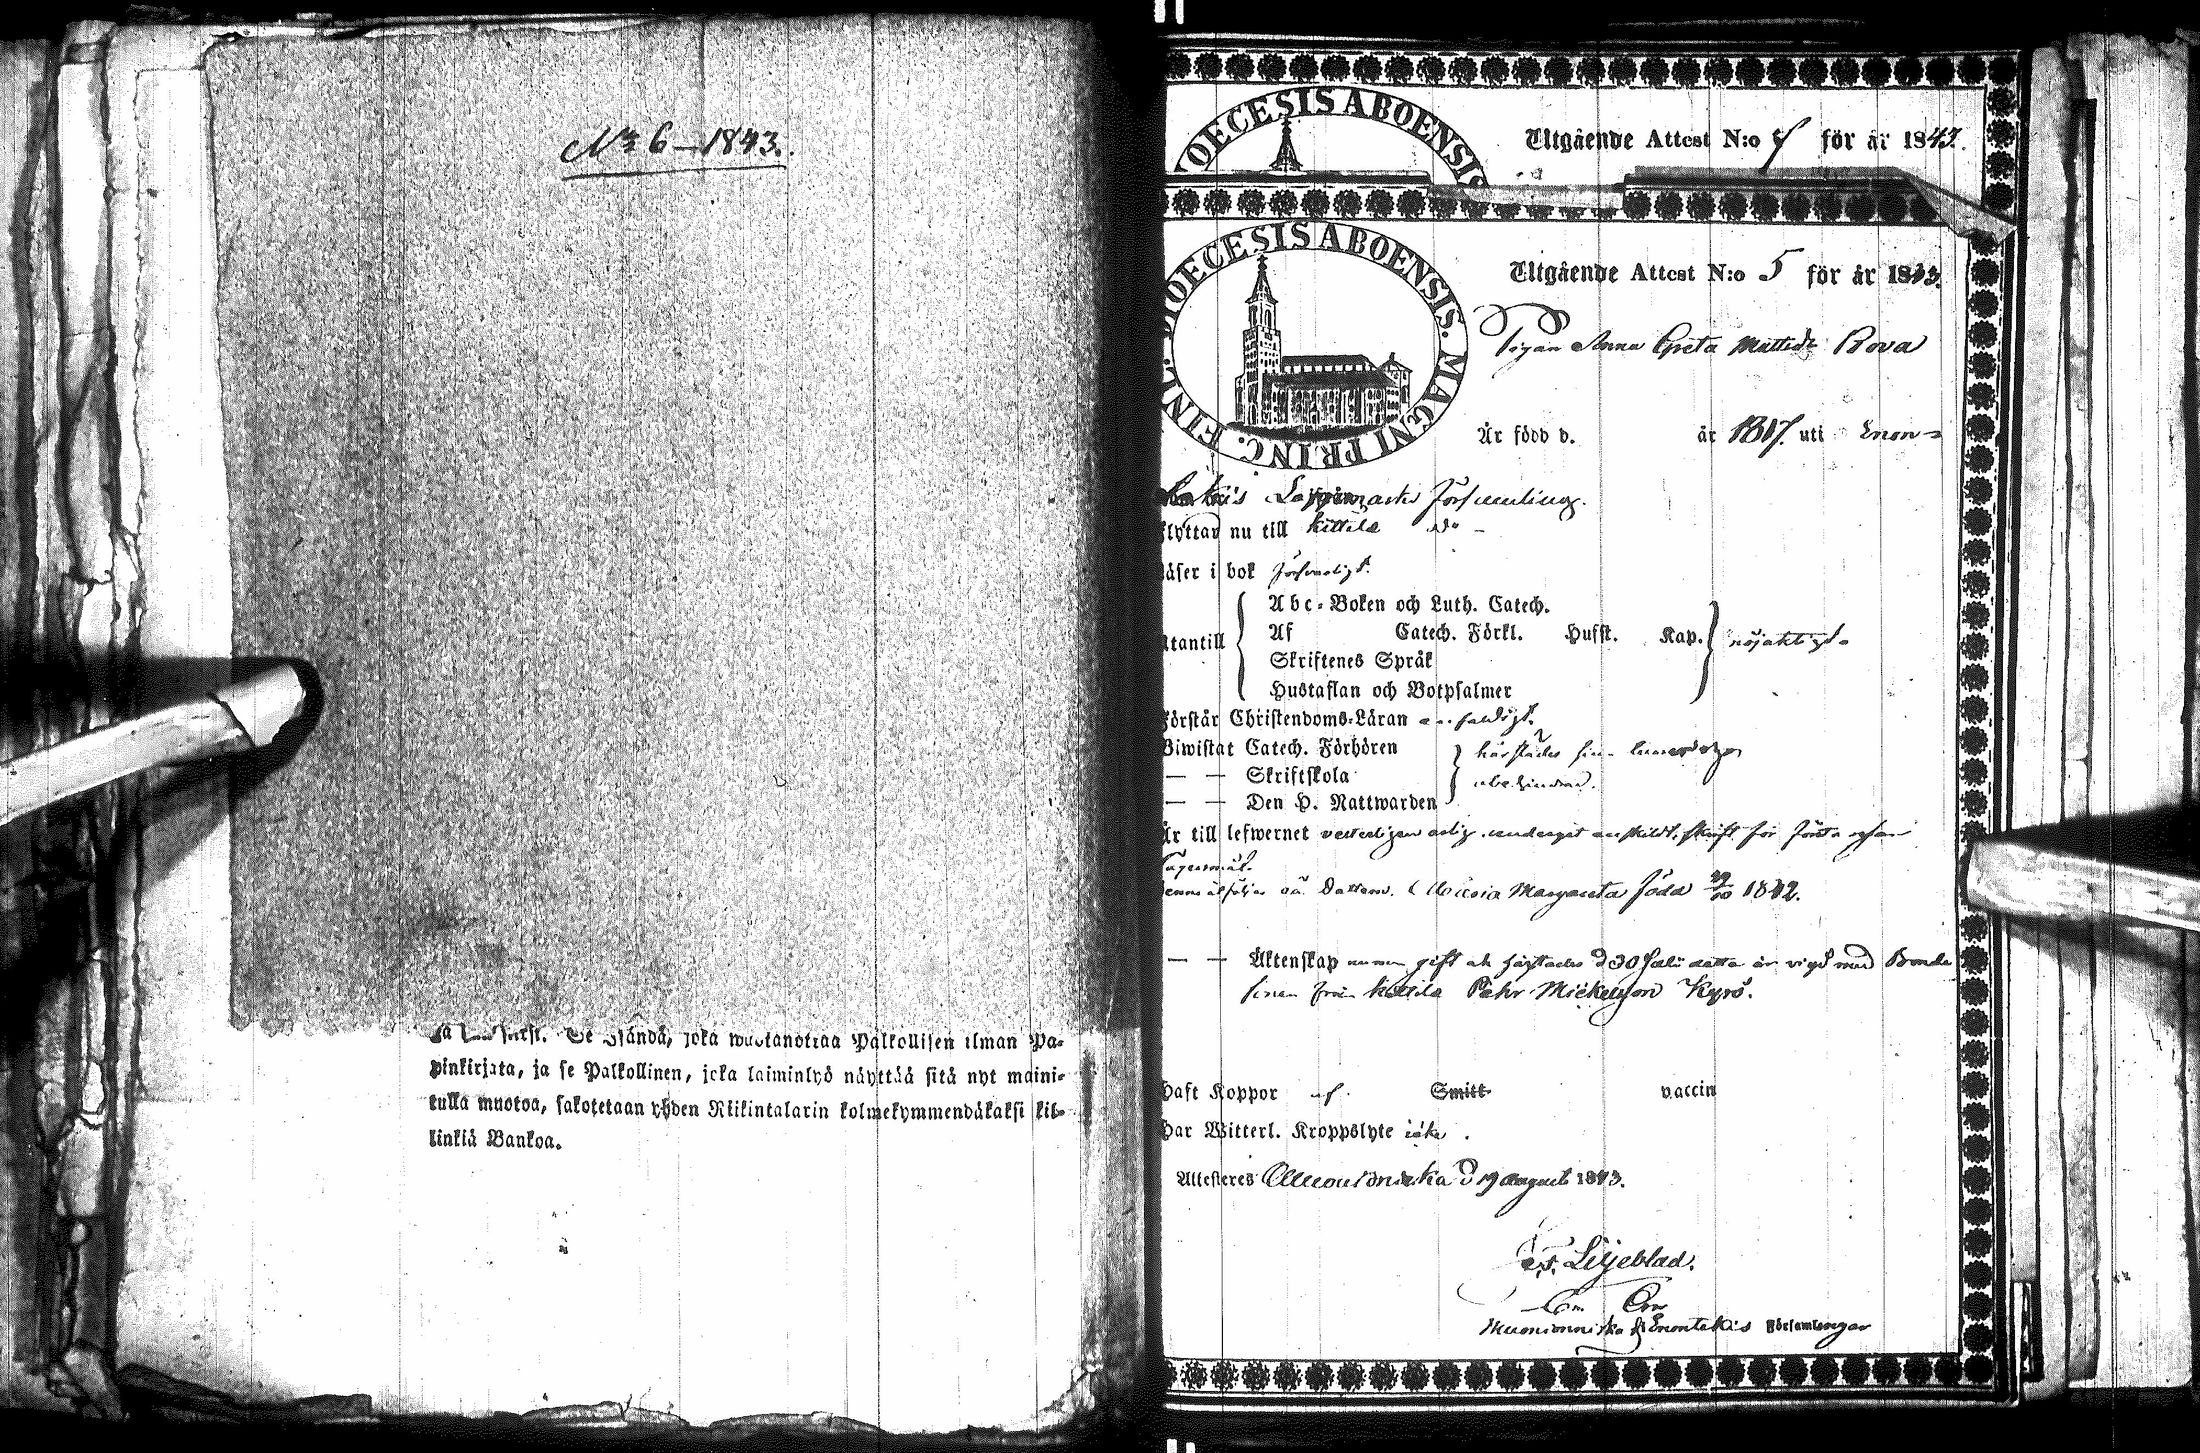 No 6 – 1843.
ja
Se Isändä, joka wastanottaa Palkollisen ilman Pa-
pinkirjata, ja se Palkollinen, joka laiminlyö näyttää sitä nyt maini-
tulla muotoa, sakotetaan yhden Riikintalarin kolmekymmendäkaksi kil-
linkiä Bankoa.
DIOECESIS ABOENSIS
Utgående Attest N:o för år 1843.
DIOECESIS ABOENSIS. MAGNI PRINC. FINL.
Utgående Attest N:o 5 för år 1843.
Pigan Anna Greta Mattsdr Rova
Är född d. år 1817. uti Enon=
tekis Lappmarks Församling.
flyttar nu till Kittila do –
läser i bok försvarligt.
utantill
Abc-Boken och Luth. Catech.
Af Catech. Förkl. Hufst. Kap.
Skriftenes Språk
Hustaflan och Botpsalmer
nöjaktigt.
Förstår Christendoms-Läran enfaldigt.
Biwistat Catech. Förhören
— — Skriftskola
— — Den H. Nattwarden
härstädes sin
obehindrad.
Är till lefwernet undergått enskildt skrift för första resan
lägersmål.
dotteren Maria Margareta född 29/10 1842.
— — Äktenskap numera gift och härstädes d 30 Juli detta år vigd med Bonde
sonen från Kittila Pehr Mickelson Kyrö.
Haft Koppor af Smitt vaccin
Har Witterl. Kroppslyte icke.
Attesteres Muonioniska d 19 August 1843.
Liljeblad.
Muonionniska & Enontekis Församlingar